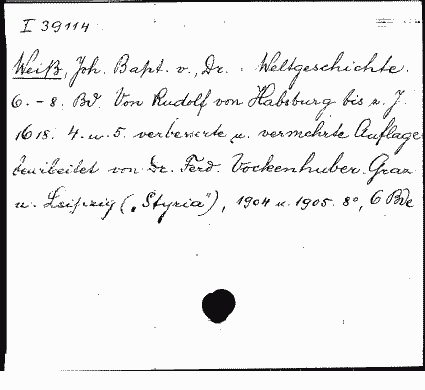 I 39114
Weiß, Joh. Bapt. v., Dr. : Weltgeschichte.
6. - 8. Bd. Von Rudolf von Habsburg bis z. J.
1618. 4. u. 5. verbesserte u. vermehrte Auflage
bearbeitet von Dr. Ferd. Vockenhuber. Graz
u. Leipzig („Styria"), 1904 u. 1905. 8°, 6 Bde